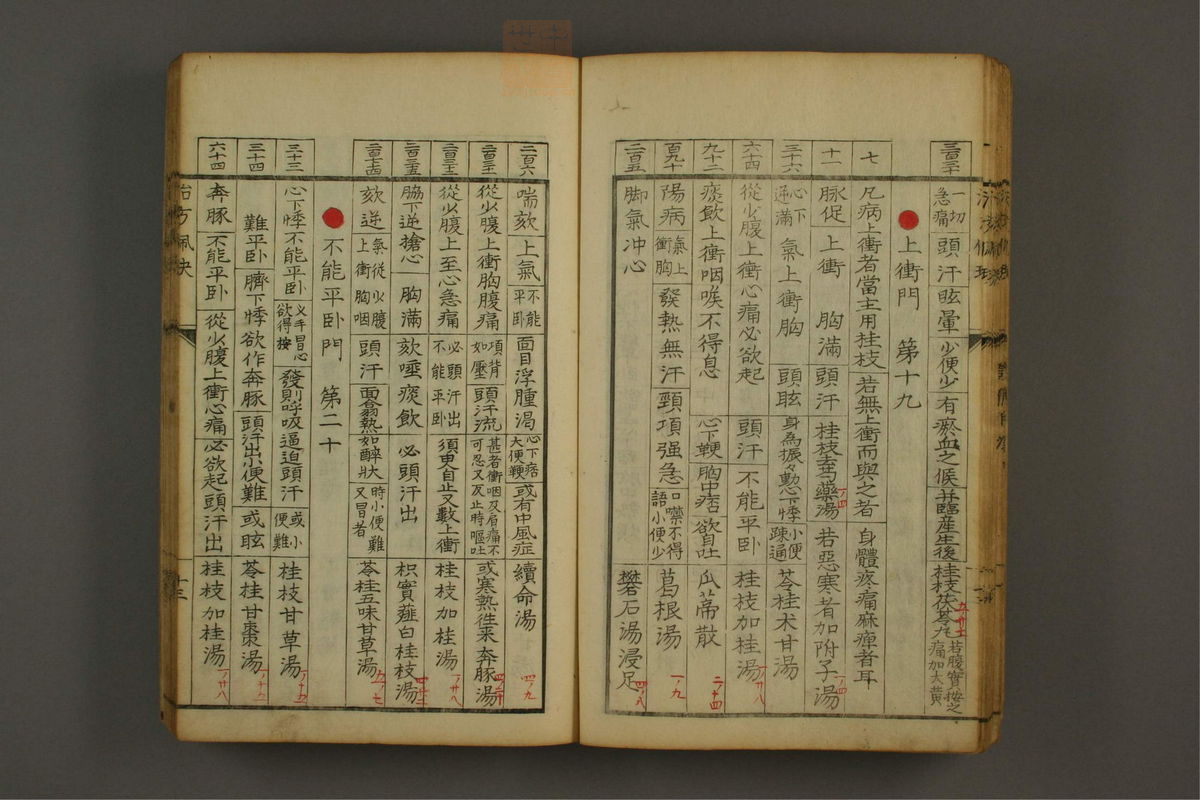 一切急痛 頭汗眩暈 少便少 有瘀血之候 並臨産生後 桂枝茯苓丸 若腹實按之痛加大黄
上衝門 第十九
七 凡病上衝者當主用桂枝 若無上衝而與之者 身體疼痛麻痺者耳
十一 脉促 上衝 胸滿 頭汗 桂枝去芍藥湯 若惡寒者加附子湯
三十六 心下逆滿 氣上衝胸 頭眩 身為振々動 心下悸 小便疎通 苓桂朮甘湯
六十四 從少腹上衝心痛必欲起 頭汗 不能平卧 桂枝加桂湯
九十二 痰飲上衝咽喉不得息 心下鞕 胸中痞 欲自吐 瓜蒂散
百九十 陽病 氣上衝胸 發熱無汗 頸項强急 口噤不得語小便少 葛根湯
二百五 脚氣冲心 礬石湯浸足
二百六 喘欬 上氣 不能平卧 面目浮腫渴 心下痞大便鞕 或有中風症 續命湯
從少腹上衝胸腹痛 項背如壓 頭汗流 甚者衝咽及肩痛不可忍又及止時嘔吐 或寒熱徃来 奔豚湯
從少腹上至心急痛 必頭汗出不能平卧 須臾自止又數上衝 桂枝加桂湯
脇下逆搶心 胸滿 欬唾痰飲 必頭汗出 枳實薤白桂枝湯
欬逆 氣從少腹上衝胸咽 頭汗 面翕熱如醉狀 時小便難又冒者 苓桂五味甘草湯
不能平卧門 第二十
三十三 心下悸不能平卧 叉手冒心欲得按 發則呼吸逼迫頭汗 或小便難 桂枝甘草湯
三十四 難平卧 臍下悸欲作奔豚 頭汗出小便難 或眩 苓桂甘棗湯
六十四 奔豚 不能平卧 從少腹上衝心痛 必欲起頭汗出 桂枝加桂湯
十三